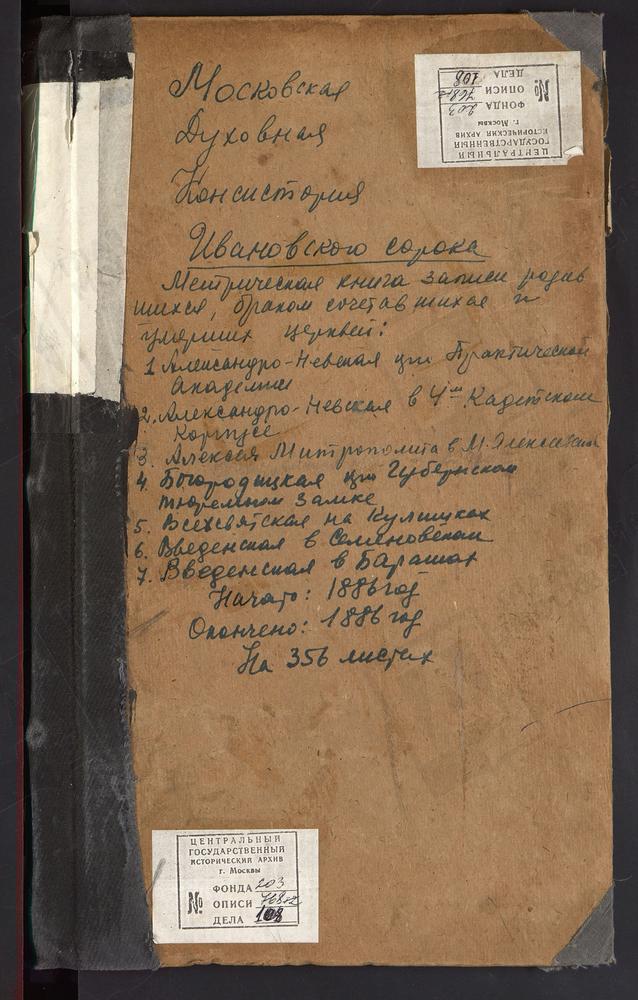 Московская
Духовная
Консистория
Ивановского сорока
Метрическая книга записи родив
шихся, браком сочетавшихся и
умерших церквей:
1 Александро-Невская при Практической
Академии
2. Александро-Невская в 4м Кадетском
Корпусе
3. Алексея Митрополита в М. Алексеевской
4. Богородицкая при Губернском
тюремном замке
5. Всехсвятская на Кулишках
6. Введенская в Семеновском
7. Введенская в Барашах
Начато: 1886 год
Окончено: 1886 год
На 356 листах
ЦЕНТРАЛЬНЫЙ
ГОСУДАРСТВЕННЫЙ
ИСТОРИЧЕСКИЙ АРХИВ
г. Москвы
№
ФОНДА 203
ОПИСИ
ДЕЛА 108
ЦЕНТРАЛЬНЫЙ
ГОСУДАРСТВЕННЫЙ
ИСТОРИЧЕСКИЙ АРХИВ
г. Москвы
№
ФОНДА 203
ОПИСИ
ДЕЛА 108